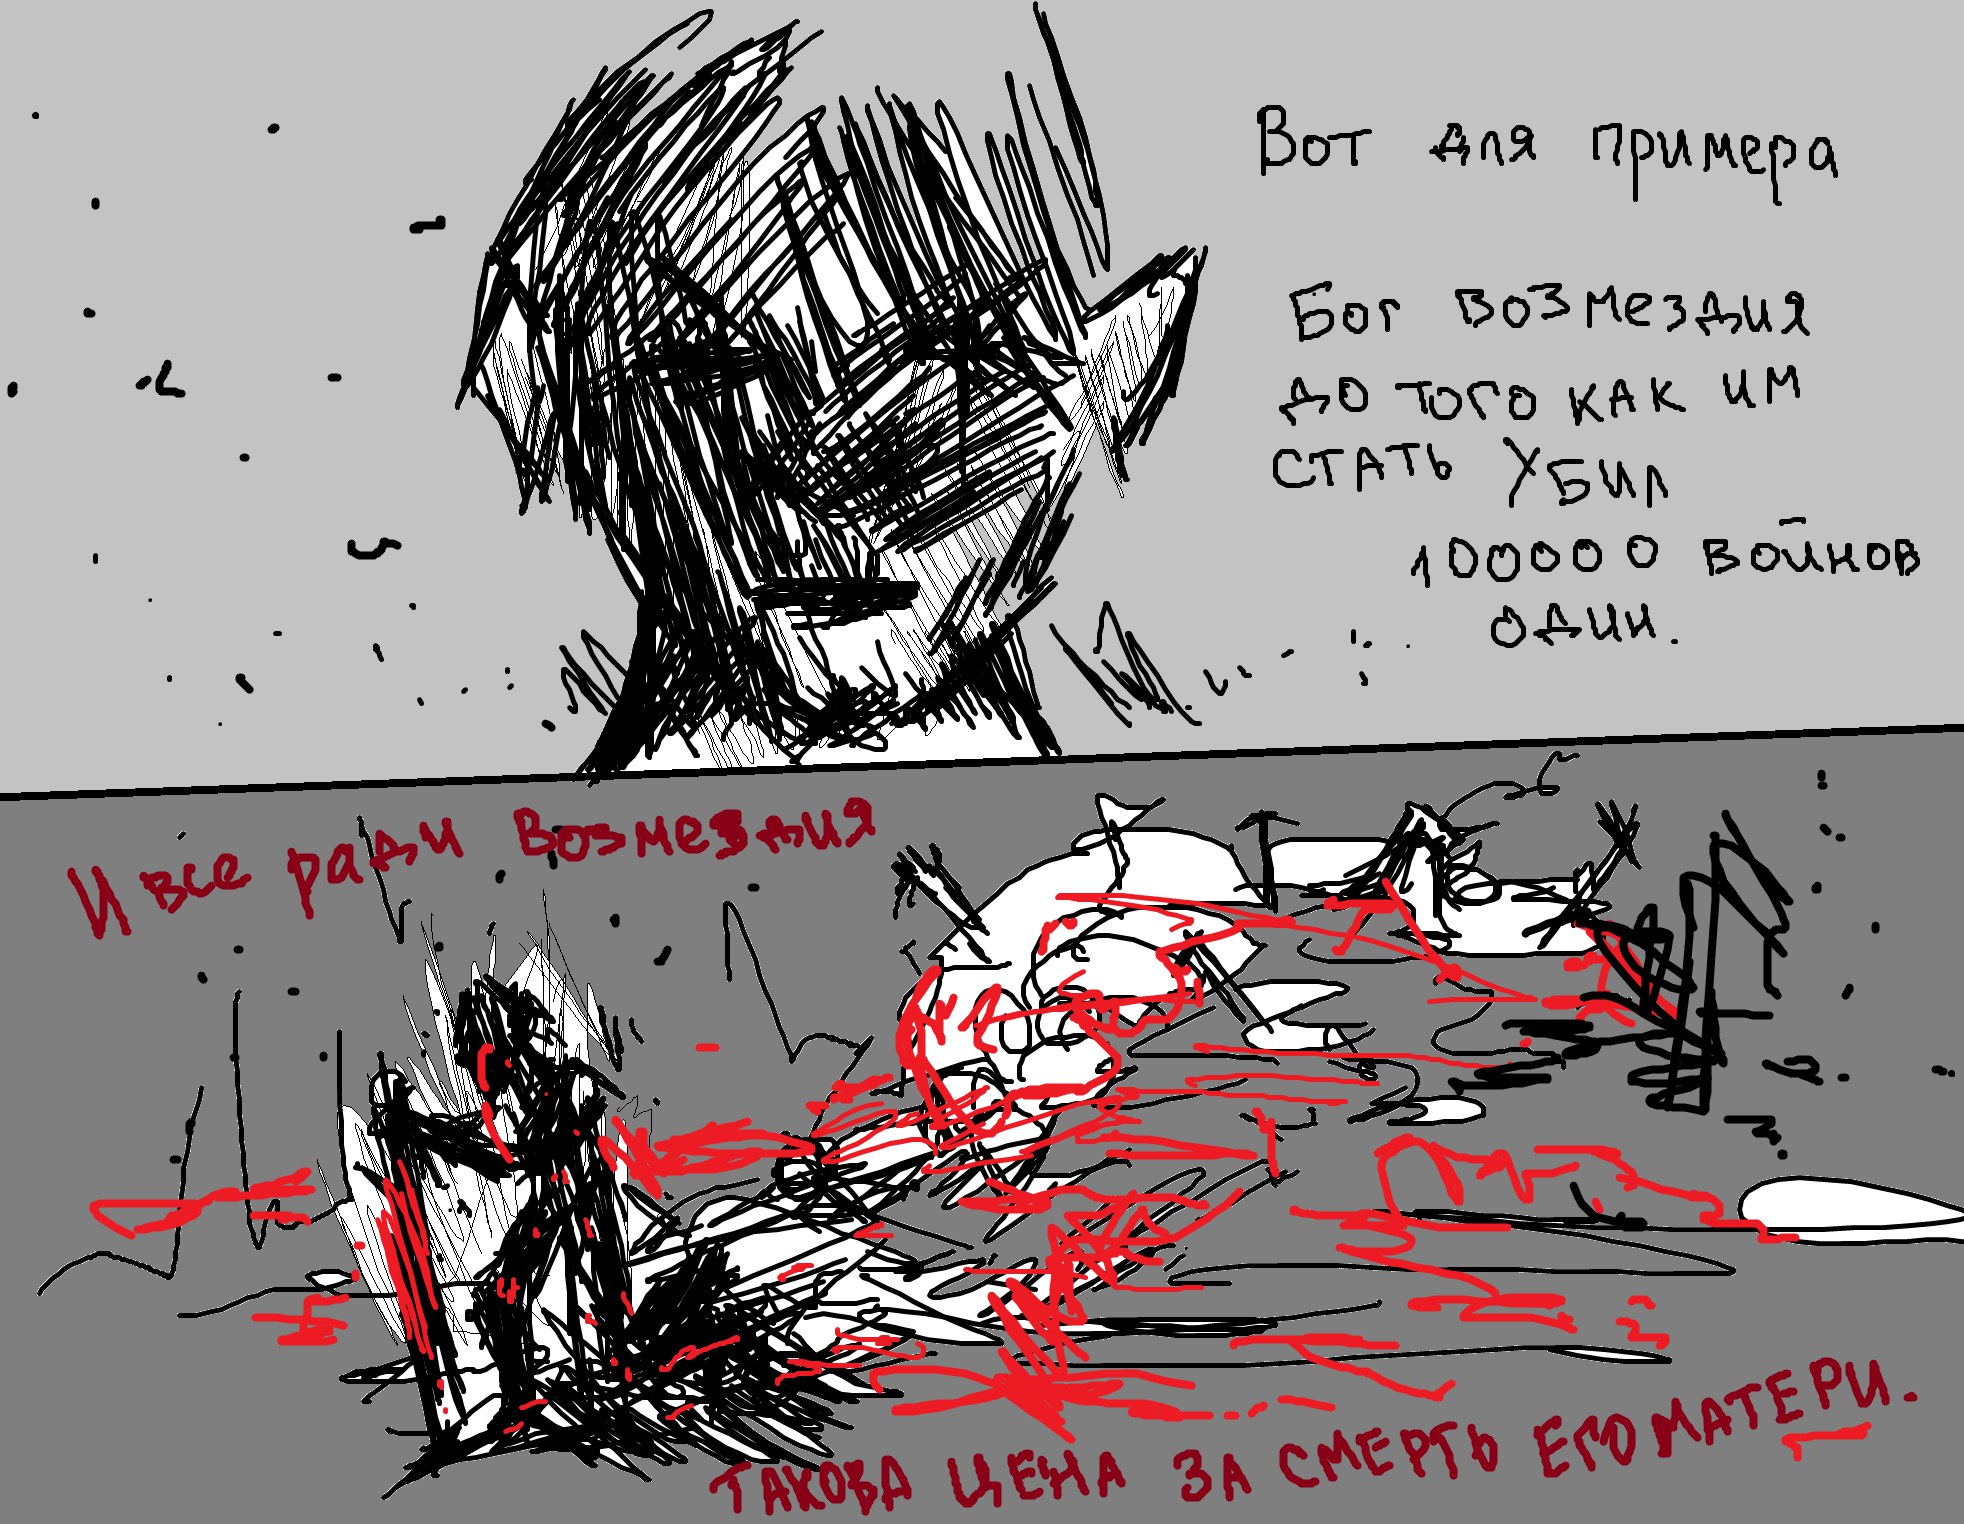 Вот для примера
Бог возмездия
до того как им
стать убил
100000 войнов
один.
И все ради возмездия
ТАКОВА ЦЕНА ЗА СМЕРТЬ ЕГО МАТЕРИ.